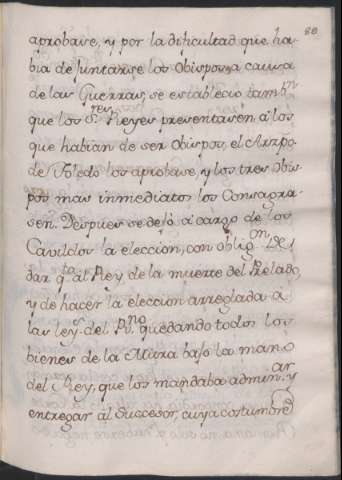 80
aprobase, y por la dificultad que ha-
bia de juntarse los Obispos, a causa
de las Guerras, se estableció tambn
que los S.res Reyes presentasen á los
que habian de ser Obispos, el Arzpo.
de Toledo los aprobase, y los tres Obis-
pos mas inmediatos los Consagra-
sen. Despues se dejó á cargo de los
Cavildos la eleccion, con oblig.on De
dar q.ta al Rey, de la muerte del Prelado,
y de hacer la eleccion arreglada á
las leys. del R.no, quedando todos los
bienes de la Mitra bajo la mano
del Rey, que los mandaba admin.ar y
entregar al Subcesor, cuya costumbre